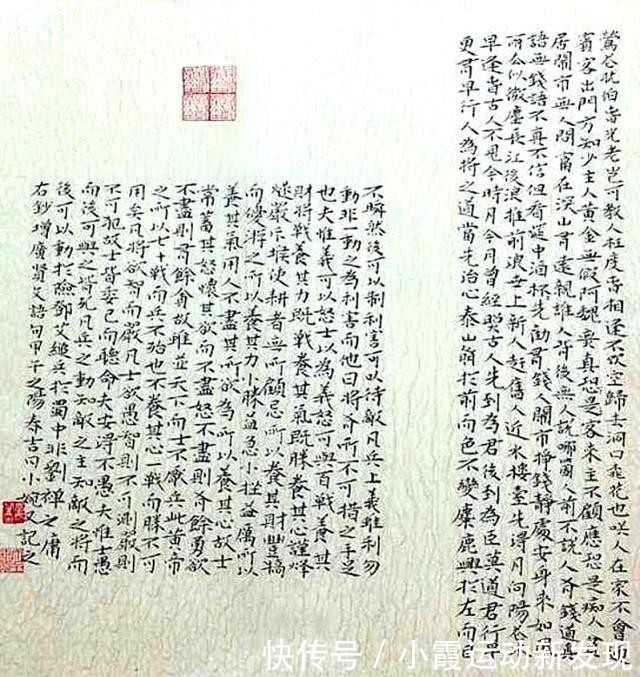 鶯花犹怕春光老豈可教人枉度春相逢不飲空歸去洞口桃花也咲人在家不會迎
賓客出門方知少主人黃金無假阿魏無真恐是客來主不顧應恐是痴人貧
居鬧市無人問富在深山有遠親誰人背後無人說哪個人前不說人有錢道真
語無錢語不真不信但看筵中酒杯杯先勸有錢人鬧市掙錢靜處安身來如風
雨去似微塵長江後浪推前浪世上新人趕舊人近水樓臺先得月向陽花木
早逢春古人不見今時月今月曾經照古人先到為君後到為臣莫道君行早
更有早行人為將之道當先治心泰山崩於前而色不變麋鹿興於左而目
不瞬然後可以制利害可以待敵凡兵上義雖利勿
動非一動之為利害而他日將有所不可措之手足
也夫惟義可以怒士以為義怒可與百戰養其
財將戰養其力既戰養其氣既勝養其心謹烽
燧嚴斥堠使耕者無所顧忌所以養其財豐犒
而優將之所以養其力小勝益急小挫益厲所以
養其氣用人不盡其所欲為所以養其心故士
常蓄其怒懷其欲而不盡怒不盡則有餘勇欲
不盡則有餘貪故雖並天下而士不厭兵此黃帝
之所以七十戰而兵不殆也不養其心一戰而勝不可
用矣凡將欲智而嚴凡士欲愚智則不可測嚴則
不可犯故士皆委己而聽命夫安得不愚夫惟士愚
而後可與之皆死凡兵之動知敵之主知敵之將而
後可以動於險鄧艾縋兵於蜀中非劉禪之庸
右鈔增廣賢文語句甲午之陽春吉日小婉又記之
快传号/小霞运动新发现